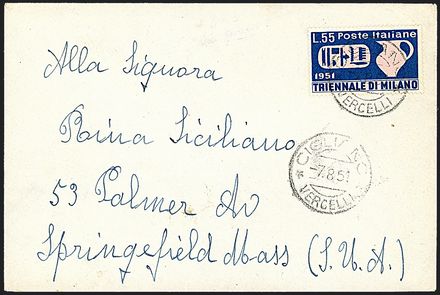 L.55 Poste Italiane
1951
TRIENNALE DI MILANO
VERCELLI
Alla Signora
Rina Siciliano
-7.8.51
VERCELLI
53 Palmer Av
Springefield Mass (S.U.A.)